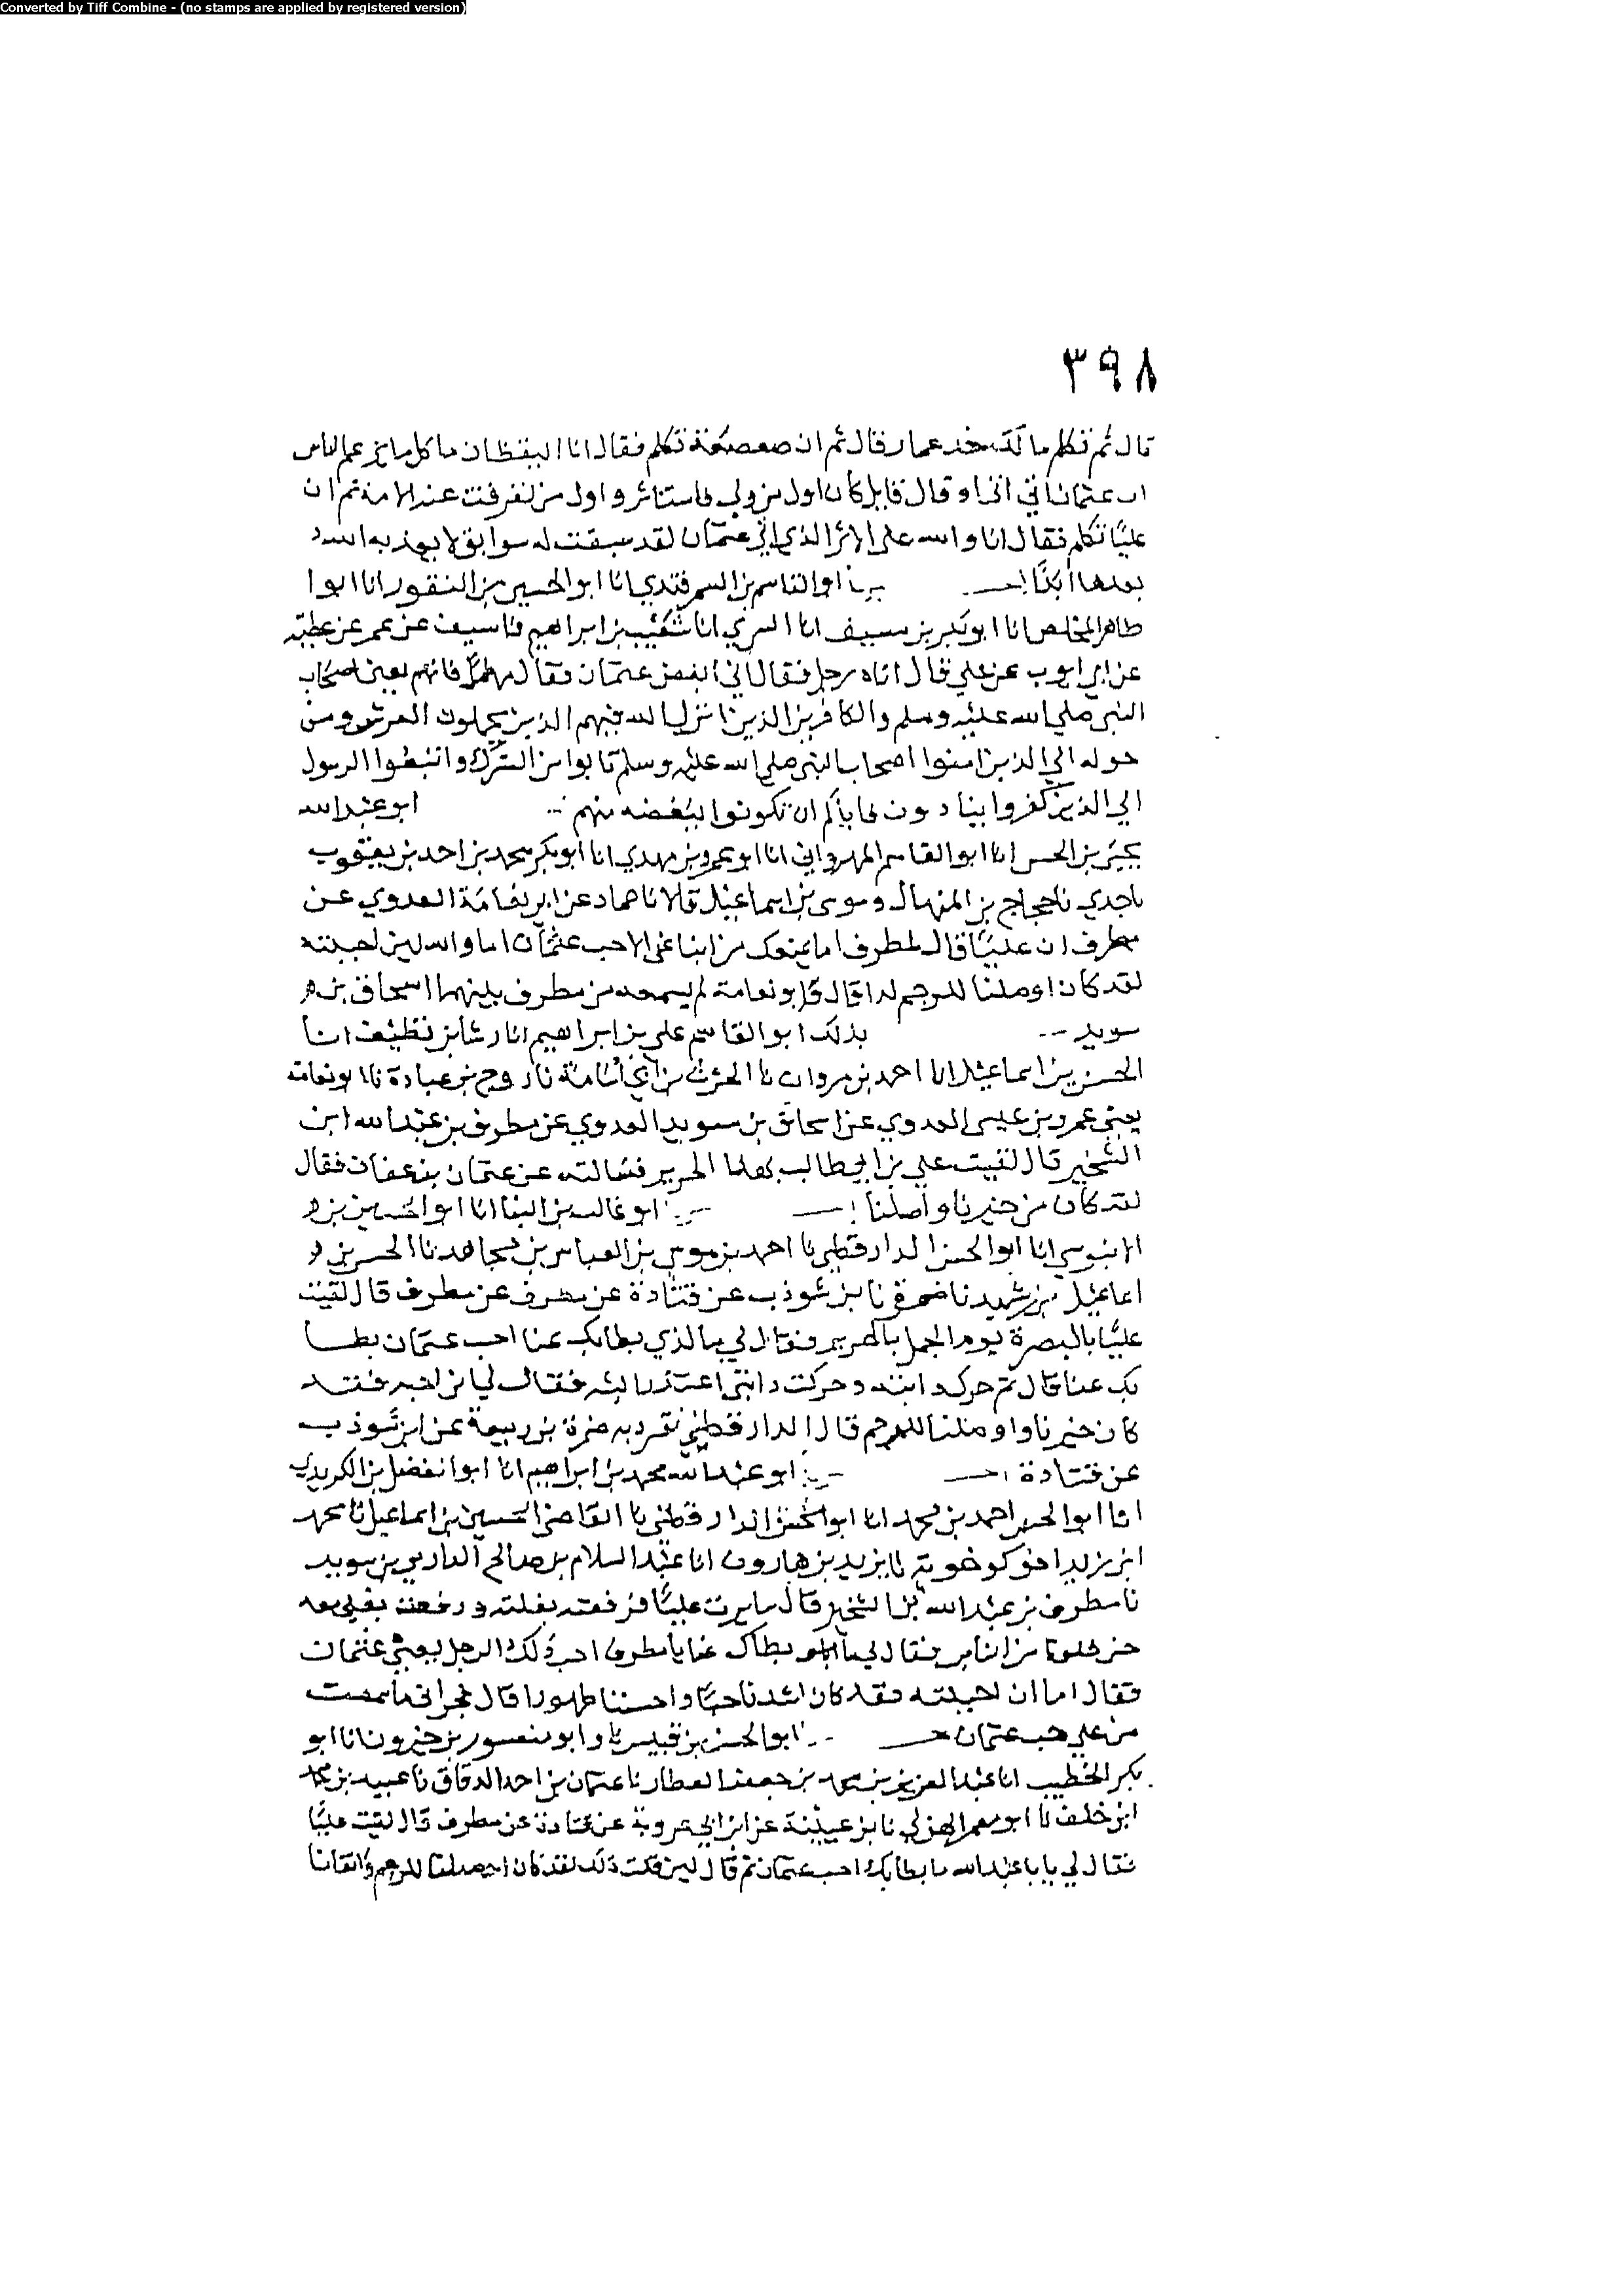 Converted by Tiff Combine - (no stamps are applied by registered version)
٣٩٨
قال ثم تكلم عمار فقال ثم ان صعصعة تكلم فقال انا اليقظان ما كل ما يزعم الناس
ان عثمان اتى اتى وقال قايل كان اول من ولي فاستاثر و اول من تفرقت عنه الامة ثم ان
عليًا تكلم فقال انا والله على الاثر الذي اتى عثمان لقد سبقت له سوابق لا يعذبه الله
بعدها ابدًا ابو القاسم بن السمرقندي انا ابو الحسين بن النقور انا ابوا
طاهر المخلص انا ابو بكر بن سيف انا السري انا شعيب بن ابراهيم نا سيف عن عمر عن عطية
عن ابي ايوب عن علي قال اتاه رجل فقال اني ابغض عثمان فقال فانهم يعني اصحاب
النبي صلى الله عليه وسلم والكافرين الذين انزل الله فيهم الذين يحملون العرش ومن
حوله الي الذين امنوا اصحاب النبي صلى الله عليه وسلم تابوا من الشرك واتبعوا الرسول
الي الذين كفروا ينادون فاياكم ان تكونوا ببغضه منهم ابو عبد الله
يحيى بن الحسن انا ابو القاسم المهرواني انا ابو عمر بن مهدي انا ابو بكر محمد بن احمد بن يعقوب
نا جدي نا حجاج بن المنهال وموسى بن اسماعيل قالا نا حماد عن ابي نعامة العدوي عن
مطرف ان عليًا قال لمطرف ما يمنعك من اتياننا الا حب عثمان اما والله لين احببته
لقد كان اوصلنا للرحم قال وابو نعامة لم يسمعه من مطرف بينهما اسحاق بن
سويد بذلك ابو القاسم علي بن ابراهيم انا رشا بن نظيف انا
الحسن بن اسماعيل انا احمد بن مروان نا الحرث بن ابي اسامة نا روح بن عبادة نا ابو نعامة
يعني عمرو بن عيسى العدوي عن اسحاق بن سويد العدوي عن مطرف بن عبد الله ابن
الشخير قال لقيت علي بن ابي طالب بهذا الحزيز فسالته عن عثمان بن عفان فقال
لقد كان من خيرنا واوصلنا ابو غالب بن البنا انا ابو الحسين بن
الابنوسي انا ابو الحسن الدارقطني نا احمد بن موسى بن العباس بن مجاهد نا الحسن بن
اسماعيل بن رشيد نا ضمرة نا بن شوذب عن قتادة عن مطرف قال لقيت
عليًا بالبصرة يوم الجمل فقال لي ما الذي بطابك عنا احب عثمان بطا
بك عنا قال ثم حرك دابته وحركت دابتي اعتذر اليه فقال لي لين احببه فقد
كان خيرنا واوصلنا للرحم قال الدارقطني تفرد به ضمرة بن ربيعة عن ابن شوذب
عن قتادة ابو عبد الله محمد بن ابراهيم انا ابو الفضل بن الكريدي
انا ابو الحسن احمد بن محمد انا ابو الحسن الدارقطني نا القاضي الحسين بن اسماعيل نا محمد
ابن يزيد اخو كرخويه نا يزيد بن هارون انا عبد السلام بن صالح الداري بن سويد
نا مطرف بن عبد الله بن الشخير قال سايرت عليًا فرفعت بغلته ودفعت بغلي معه
حتى من الناس فقال لي ما بطاك عنا يا مطرف احب ذلك الرجل يعني عثمان
فقال اما ان احببته فقد كان اشدنا حيا واحسننا طهورا قال ما سمعت
من علي حب عثمان ابو الحسن بن قبيس نا وابو منصور بن خيرون انا ابو
بكر الخطيب انا عبد العزيز بن محمد بن جعفر العطار نا عثمان بن احمد الدقاق نا عبيد بن محمد
ابن خلف نا ابو معمر الهذلي نا بن عيينة عن ابن ابي عروبة عن قتادة عن مطرف قال لقيت عليًا
فقال لي يا با عبد الله ما بطا بك احب عثمان ثم قال لين قلت ذلك لقد كان اوصلنا للرحم واتقانا